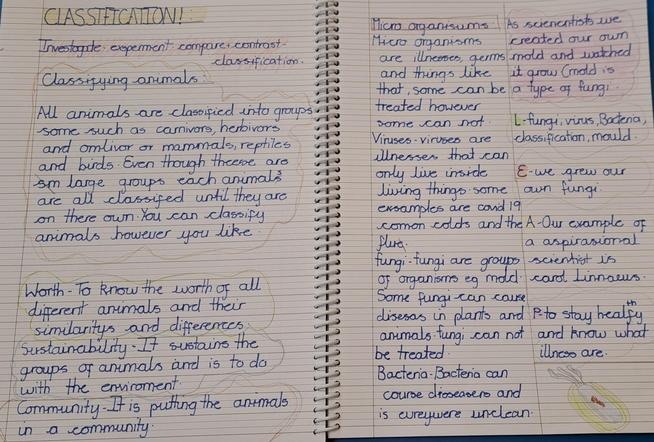 CLASSIFICATION!
Investigate · experiment · compare · contrast -
classification.
Classifying animals:
All animals are classified into groups
some such as carnivors, herbivors
and omlivor or mammals, reptiles
and birds. Even though theese are
sm large groups each animals
are all classifed until they are
on there own. You can classify
animals however you like.
Worth - To know the worth of all
different animals and their
similaritys and differences.
Sustainability - It sustains the
groups of animals and is to do
with the enviroment.
Community - It is putting the animals
in a community.
Micro organisums:
Micro organisms
are illnesses, germs
and things like
that, some can be
treated however
some can not.
Viruses - viruses are
illnesses that can
only live inside
living things. some
exsamples are covid 19
comon colds and the
flue.
fungi - fungi are groups
of organisms eg mold.
Some fungi can cause
diseses in plants and
animals. fungi can not
be treated.
Bacteria - Bacteria can
course dieseasers and
is unclean.
As scienentists we
created our own
mold and watched
it grow (mold is
a type of fungi.
L - fungi, virus, Bacteria,
classification, mould.
E - we grew our
own fungi.
A - Our example of
a aspirasional
scientist is
carol Linnaeus.
P - to stay healfy th
and know what
illness are.